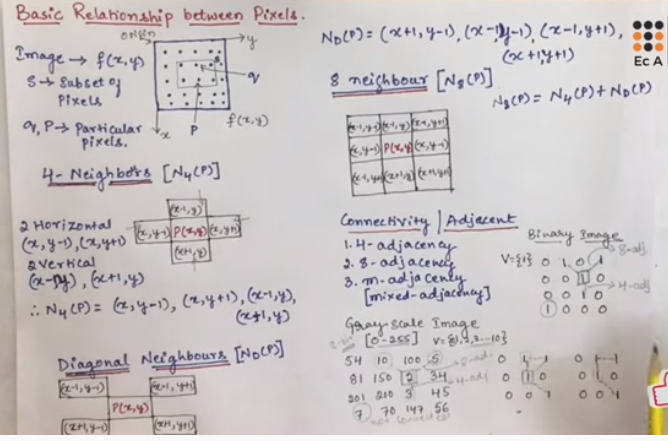 Basic Relationship between Pixels.
origin
y
Image → f(x,y)
S → Subset of
Pixels
q, P → Particular
Pixels.
q
x
P
f(x,y)
4-Neighbors [N4(P)]
(x-1,y)
(x,y-1) P(x,y) (x,y+1)
(x+1,y)
2 Horizontal
(x,y-1),(x,y+1)
2 Vertical
(x-1,y), (x+1,y)
∴ N4(P) = (x,y-1), (x,y+1), (x-1,y),
(x+1,y)
Diagonal Neighbours [ND(P)]
(x-1,y-1) (x-1,y+1)
P(x,y)
(x+1,y-1) (x+1,y+1)
ND(P) = (x+1,y-1), (x-1,y-1), (x-1,y+1),
(x+1,y+1)
EC A
8 neighbour [N8(P)]
N8(P) = N4(P) + ND(P)
(x-1,y-1) (x-1,y) (x-1,y+1)
(x,y-1) P(x,y) (x,y-1)
(x+1,y) (x+1,y+1)
Connectivity | Adjacent
1. 4-adjacency
2. 8-adjacency
3. m-adjacency
[mixed-adjacency]
Binary Image
8-adj
V={1} 0 1 0 1
0 0 1 0
4-adj
0 0 1 0
1 0 0 0
Gray-scale Image
[0-255] V={1,2,3...10}
54 10 100 5
8-adj
81 150 2 34
4-adj
201 200 3 45
7 70 147 56
not connected
0 1 1
0 1 0
0 0 1
0 1 1
0 1 0
0 0 1